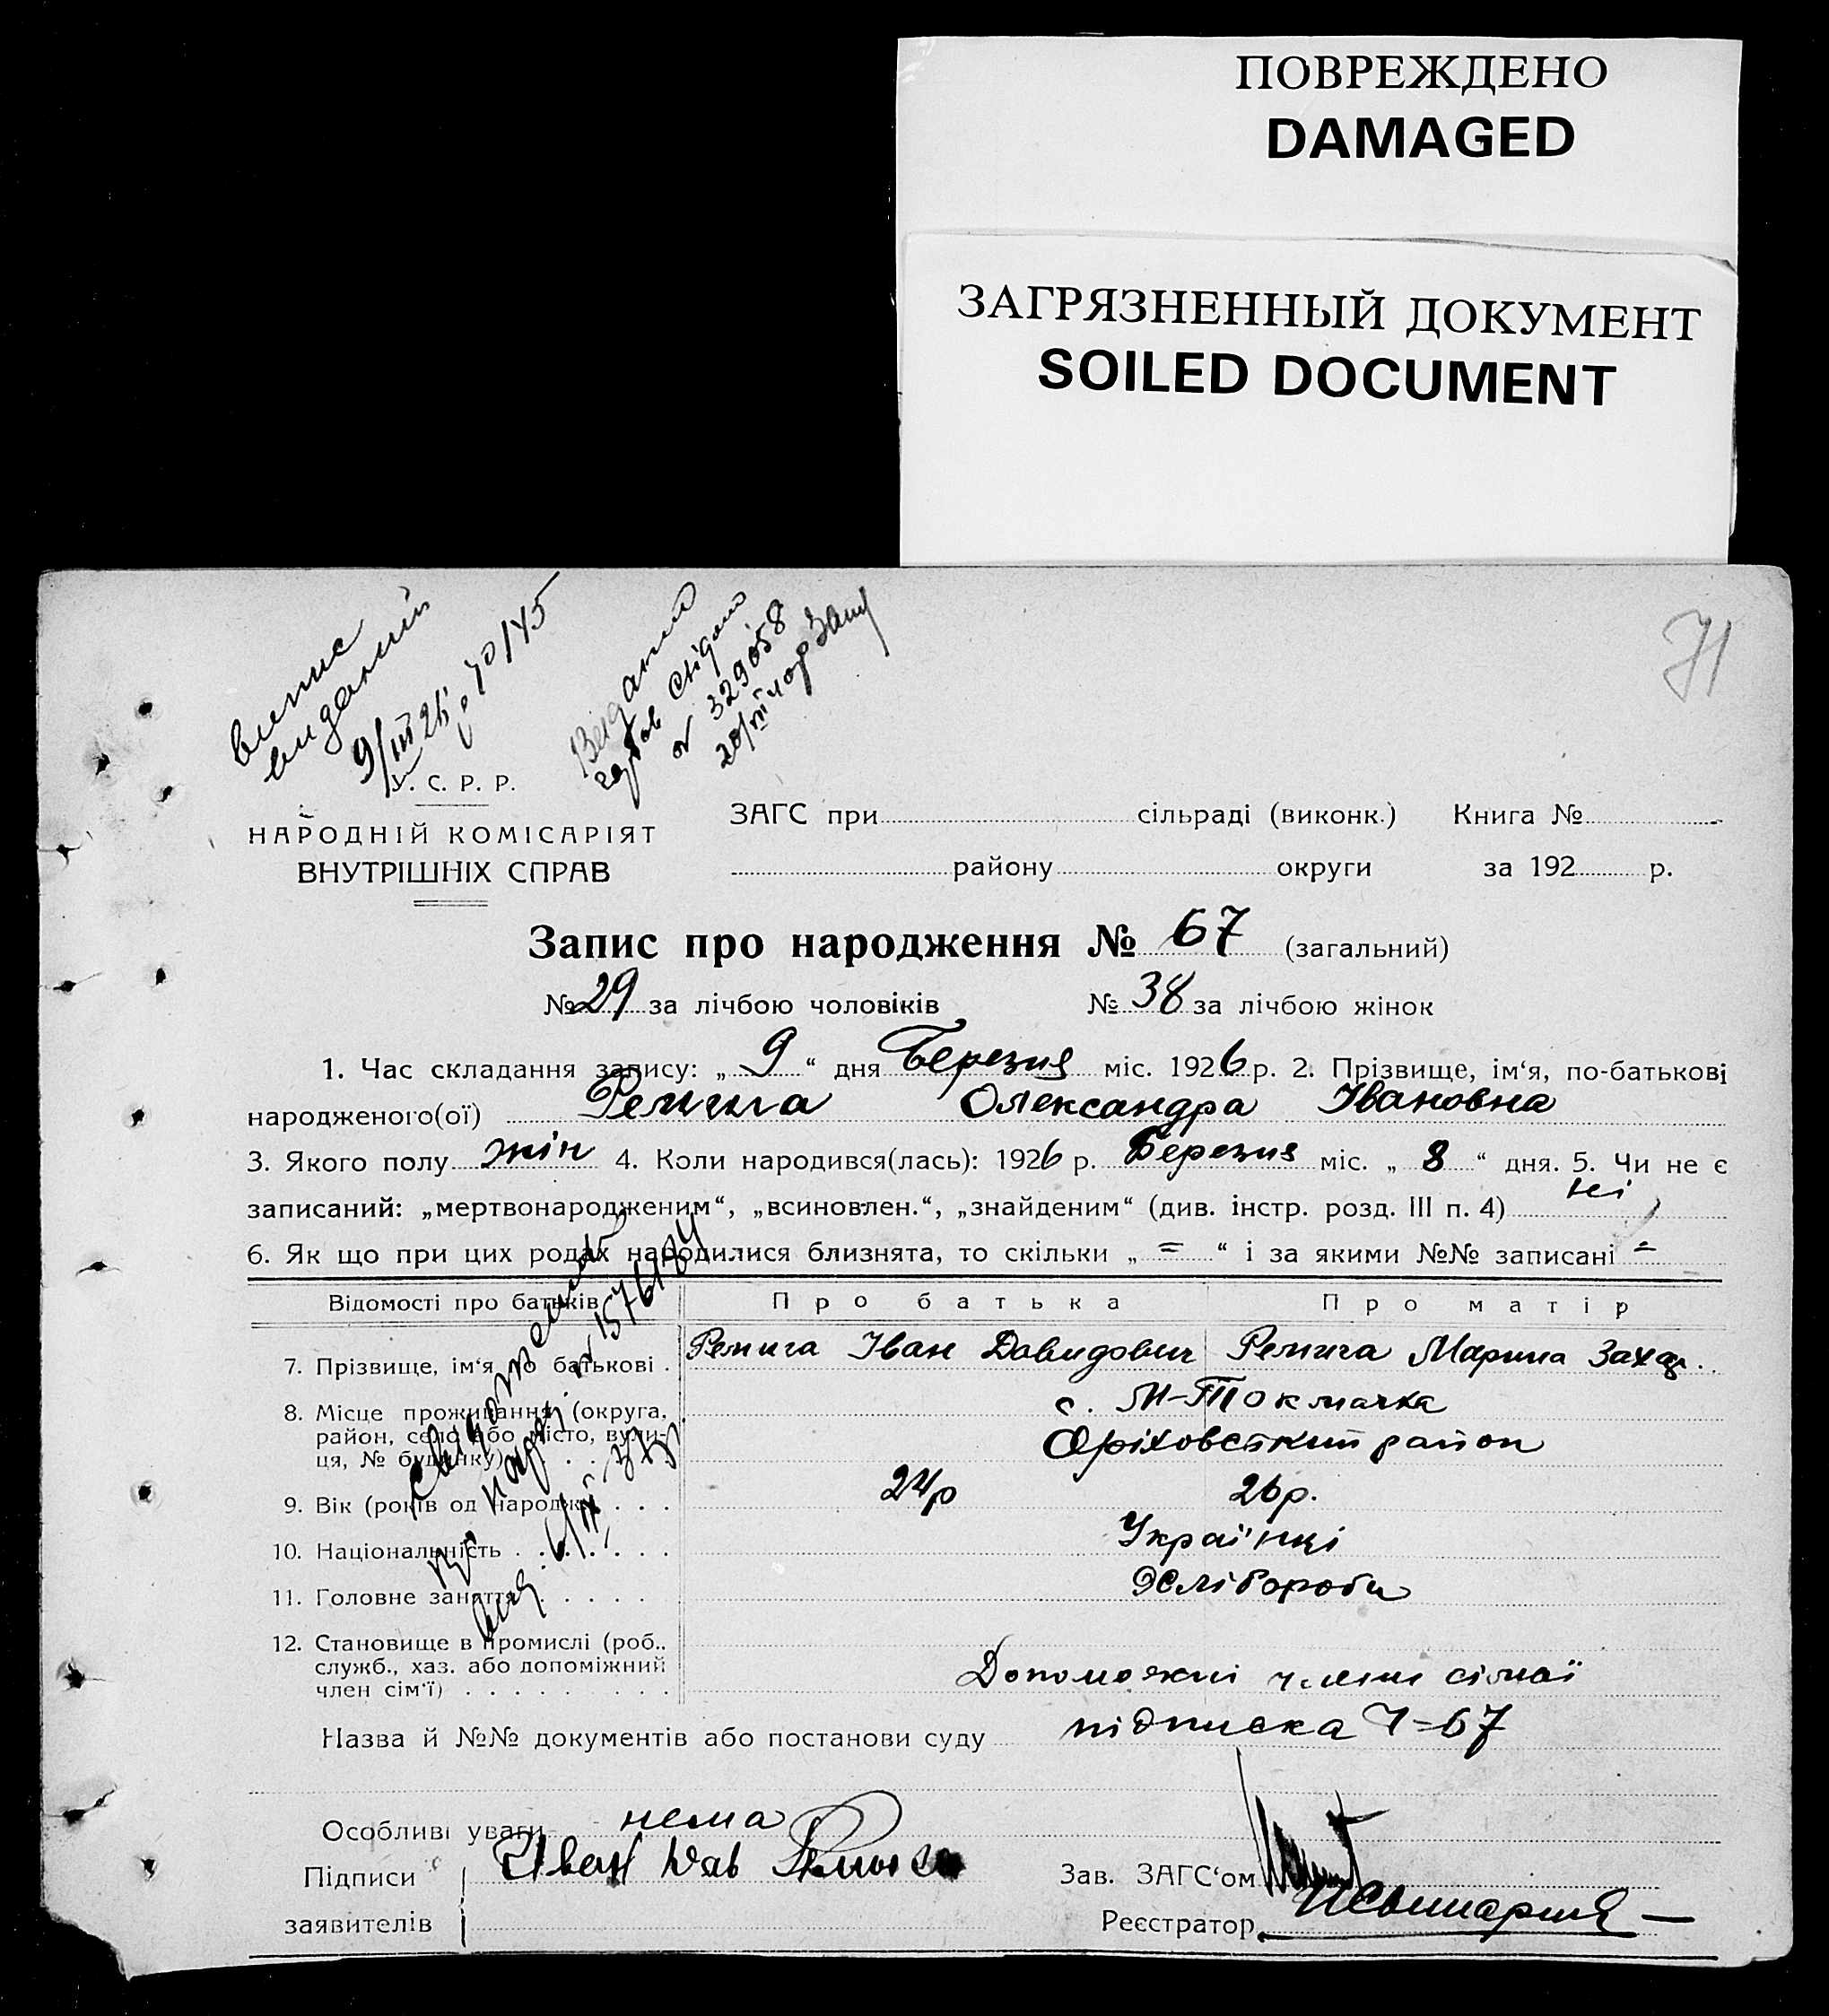 ПОВРЕЖДЕНО
DAMAGED
ЗАГРЯЗНЕННЫЙ ДОКУМЕНТ
SOILED DOCUMENT
71
випис
виданий
9/III 26 р. 70/45
Видано
329058
У. С. Р. Р.
НАРОДНІЙ КОМІСАРІЯТ
ВНУТРІШНІХ СПРАВ
ЗАГС при сільраді (виконк.) Книга №
району округи за 192 р.
Запис про народження № 67 (загальний)
№ 29 за лічбою чоловіків № 38 за лічбою жінок
1. Час складання запису: „ 9 “ дня Березня міс. 1926 р. 2. Прізвище, ім‘я, по-батькові
народженого(ої) Олександра Івановна
3. Якого полу жін 4. Коли народився(лась): 1926 р. Березня міс. „ 8 “ дня. 5. Чи не є
записаний: „мертвонародженим“, „всиновлен.“, „знайденим“ (див. інстр. розд. III п. 4) ні
6. Як що при цих родах народилися близнята, то скільки „ = “ і за якими №№ записані =
Відомості про батьків Про батька Про матір
7. Прізвище, ім‘я по батькові . Іван Давидович Марина Захар.
8. Місце проживання (округа, с. М-Токмачка
район, село або місто, вули- Оріховський район
ця, № будинку)
9. Вік (років од народж.) . . . 24р 26р.
10. Національність . . . . . . Українці
11. Головне заняття . . . . . Хлібороби
12. Становище в промислі (роб.,
служб., хаз. або допоміжний Допоможні члени сімої
член сім‘ї) . . . . . . . . .
Назва й №№ документів або постанови суду підписка Ч=67
Особливі уваги нема
Підписи Иван Дав
Зав. ЗАГС‘ом
заявителів
Реєстратор